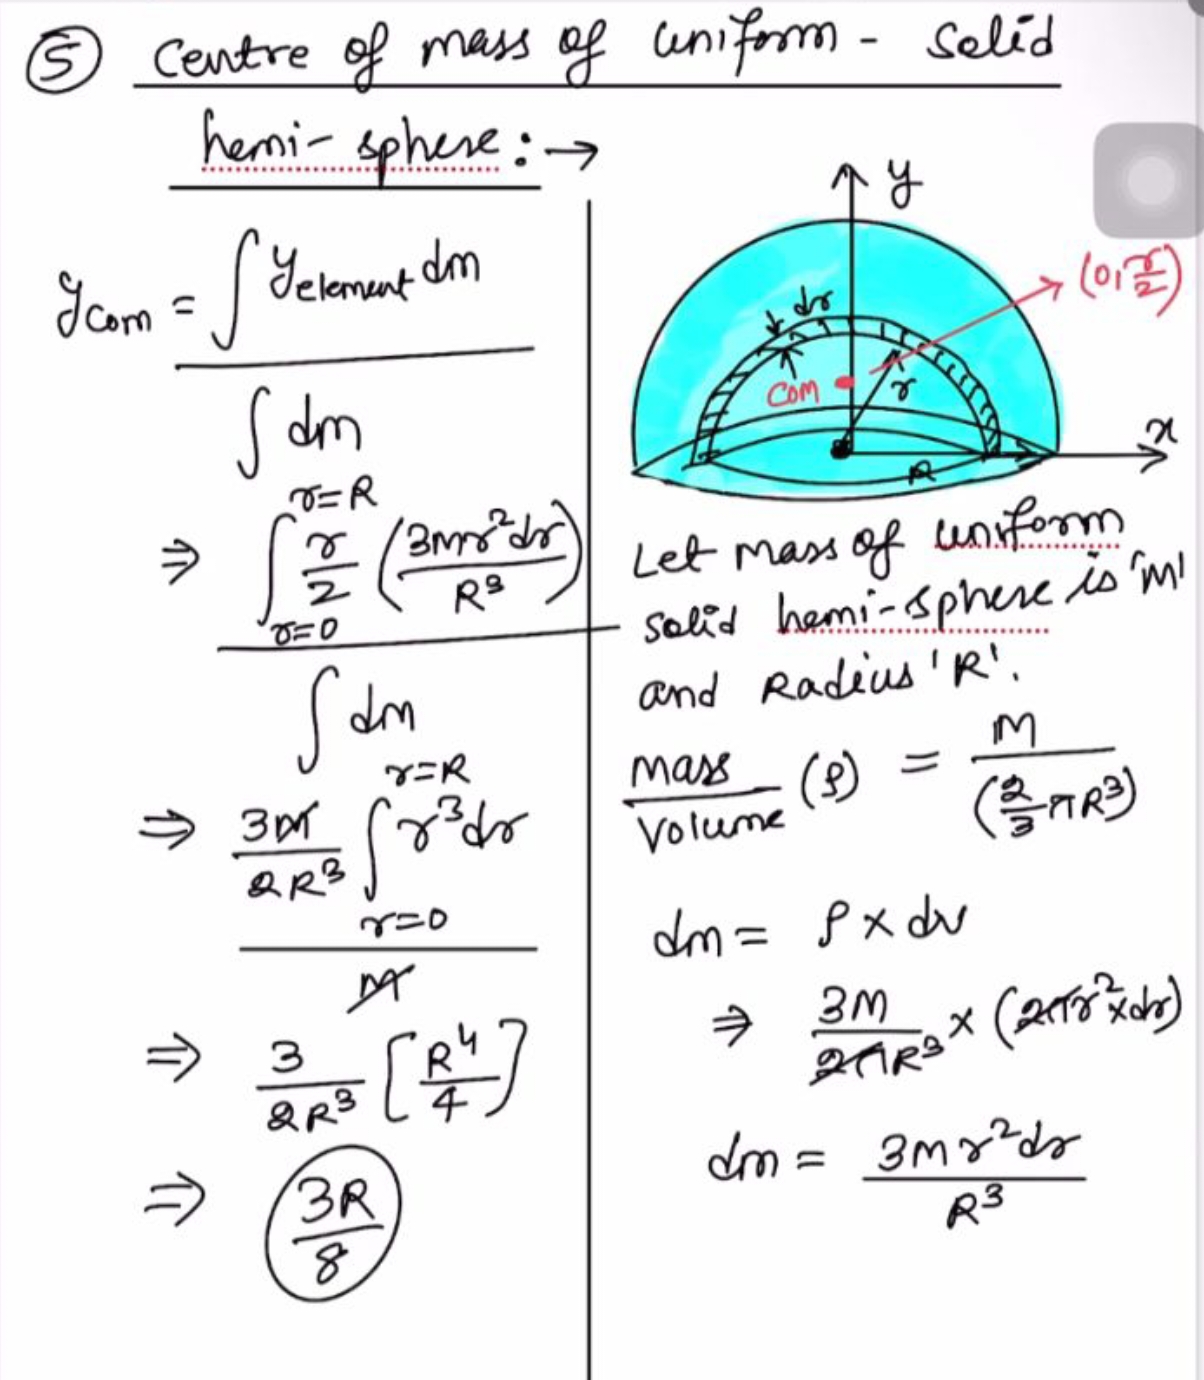 ⑤ Centre of mass of uniform - Solid
hemi-sphere : →
y_com = ∫ y_element dm
∫ dm
r=R
⇒ ∫ r/2 (3Mr²dr / R³)
r=0
∫ dm
r=R
⇒ 3M/2R³ ∫ r³dr
r=0
M
⇒ 3/2R³ [R⁴/4]
⇒ 3R/8
y
(0, r/2)
dr
COM
r
x
R
Let mass of uniform
solid hemi-sphere is 'M'
and Radius 'R'.
mass/Volume (ρ) = M/(2/3 πR³)
dm = ρ × dv
⇒ 3M/2πR³ × (2πr² × dr)
dm = 3Mr²dr/R³